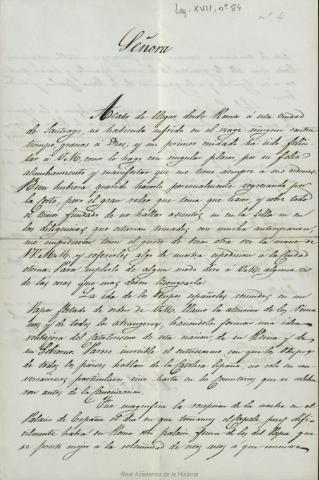 Leg. XVII, nº 84
nº 4
Señora
Acabo de llegar desde Roma á esta ciudad
de Santiago, no habiendo sufrido en el viage ningun contra
tiempo, gracias á Dios, y mi primer cuidado ha sido felici-
tar á V.M. como lo hago con singular placer por su feliz
alumbramiento y manifestar que me tiene siempre a sus ordenes.
Bien hubiera querido hacerlo personalmente regresando por
la Corte, pero el gran calor que tenia que hacer, y sobre todo
el temor fundado de no hallar asientos, ni en la silla ni en
las diligencias que estarian tomados con mucha anticipacion,
me impidieron tener el gusto de besar otra vez la mano de
V.M. y referirles algo de nuestra espedicion a la Ciudad
eterna. Para suplirlo de algun modo diré á V.M. alguna
de las cosas que mas deben lisongearla.
La ida de los Obispos españoles reunidos en un
Vapor fletado de orden de V.M. llamó la atencion de los Roma
nos y de todos los estrangeros, haciendoles formar una idea
ventajosa del catolicismo de esta nacion, de su Reina y de
su Gobierno. Parece increible el entusiasmo con que los Obispos
de todos los paises hablan de la Católica España, no solo en con
versaciones particulares, sino hasta en los Consistorios que se celebra
ron antes de la Canonizacion.
Fue magnífica la recepcion de la noche en el
Palacio de España el dia en que tomamos el Capelo, pues dificil
mente habrá en Roma otro palacio, fuera de los del Papa que
se preste mejor a la solemnidad de estos actos, á que concurre
Real Academia de la Historia